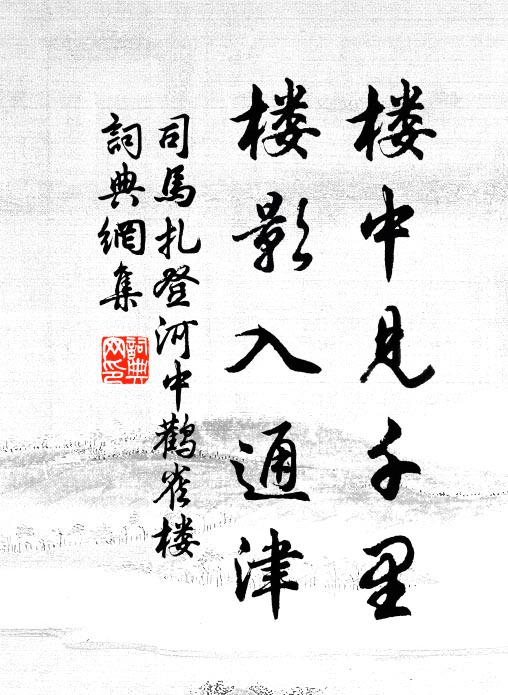 楼中见千里
楼影入通津
司馬扎登河中鹳雀楼
詞典網集
詞典
网印